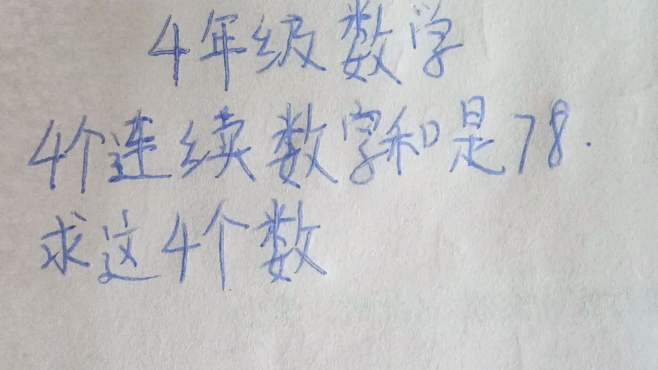 4年级数学
4个连续数字和是78.
求这4个数